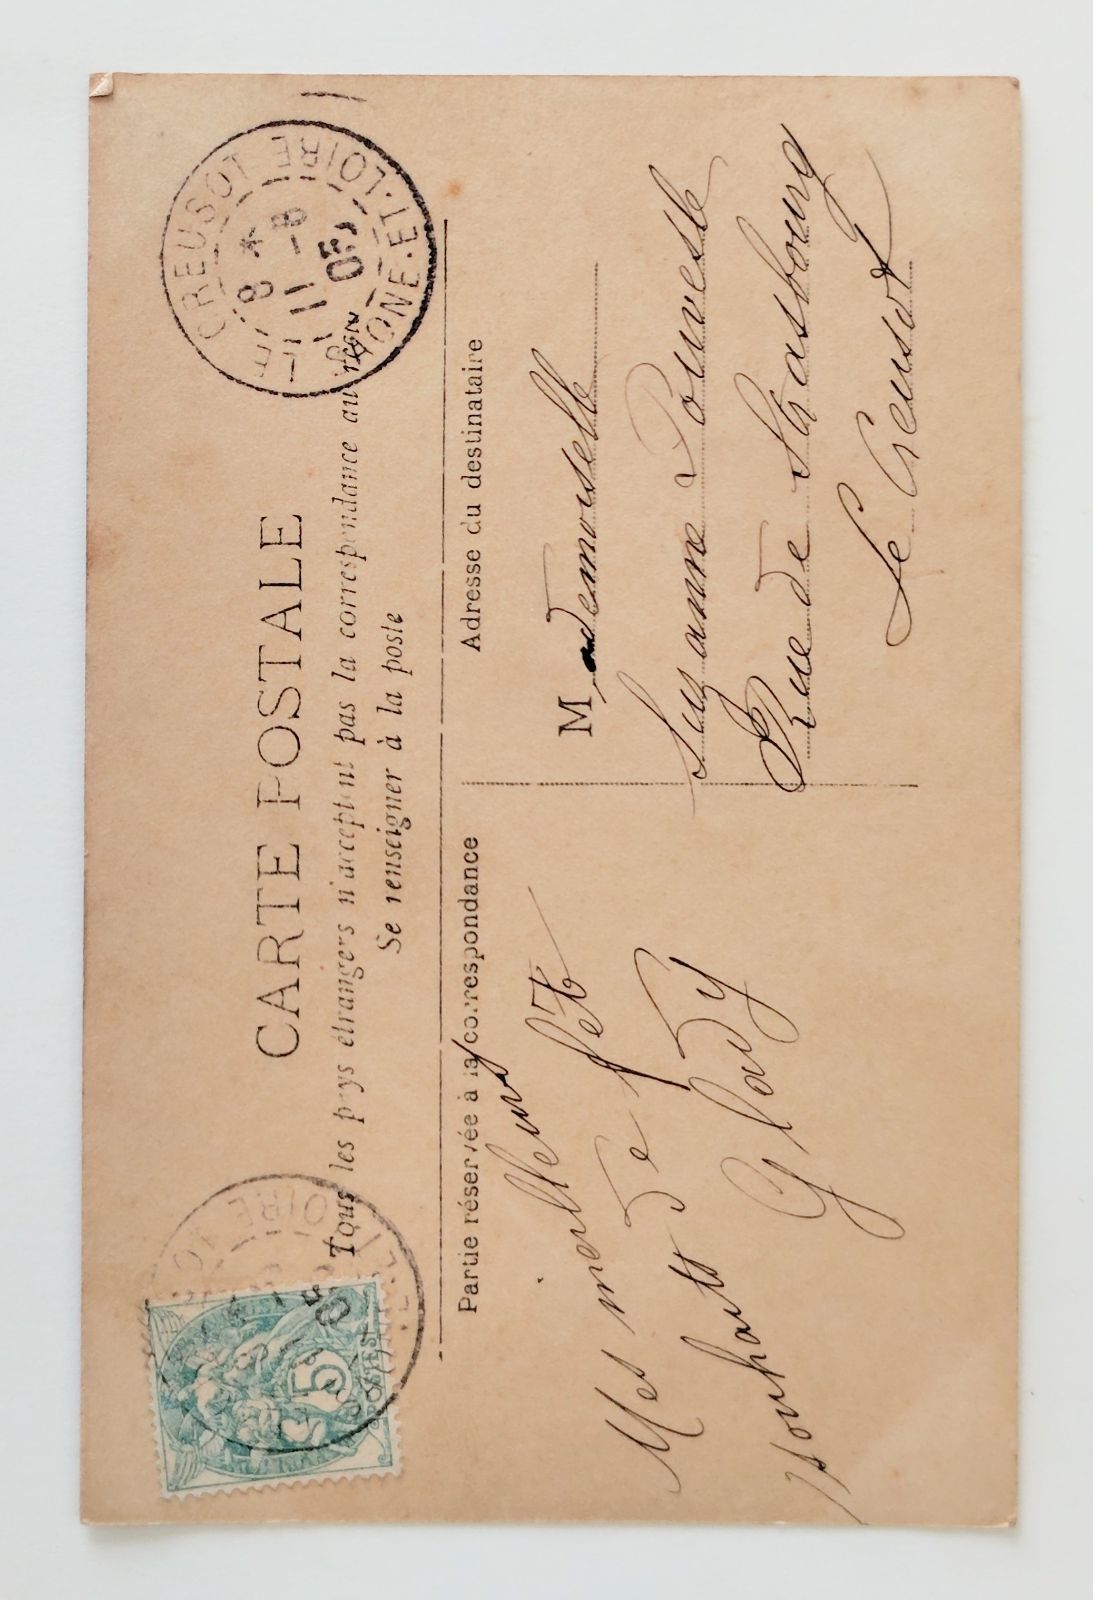 CARTE POSTALE
Tous les pays étrangers n'acceptent pas la correspondance au recto
Se renseigner à la poste
LE CREUSOT
SAONE-ET-LOIRE
8*
11-8
05
5
POSTES
Partie réservée à la correspondance
Adresse du destinataire
Mes meilleurs
souhaits de fête
Glady
Mademoiselle
Suzanne
Rue de Strasbourg
Le Creusot